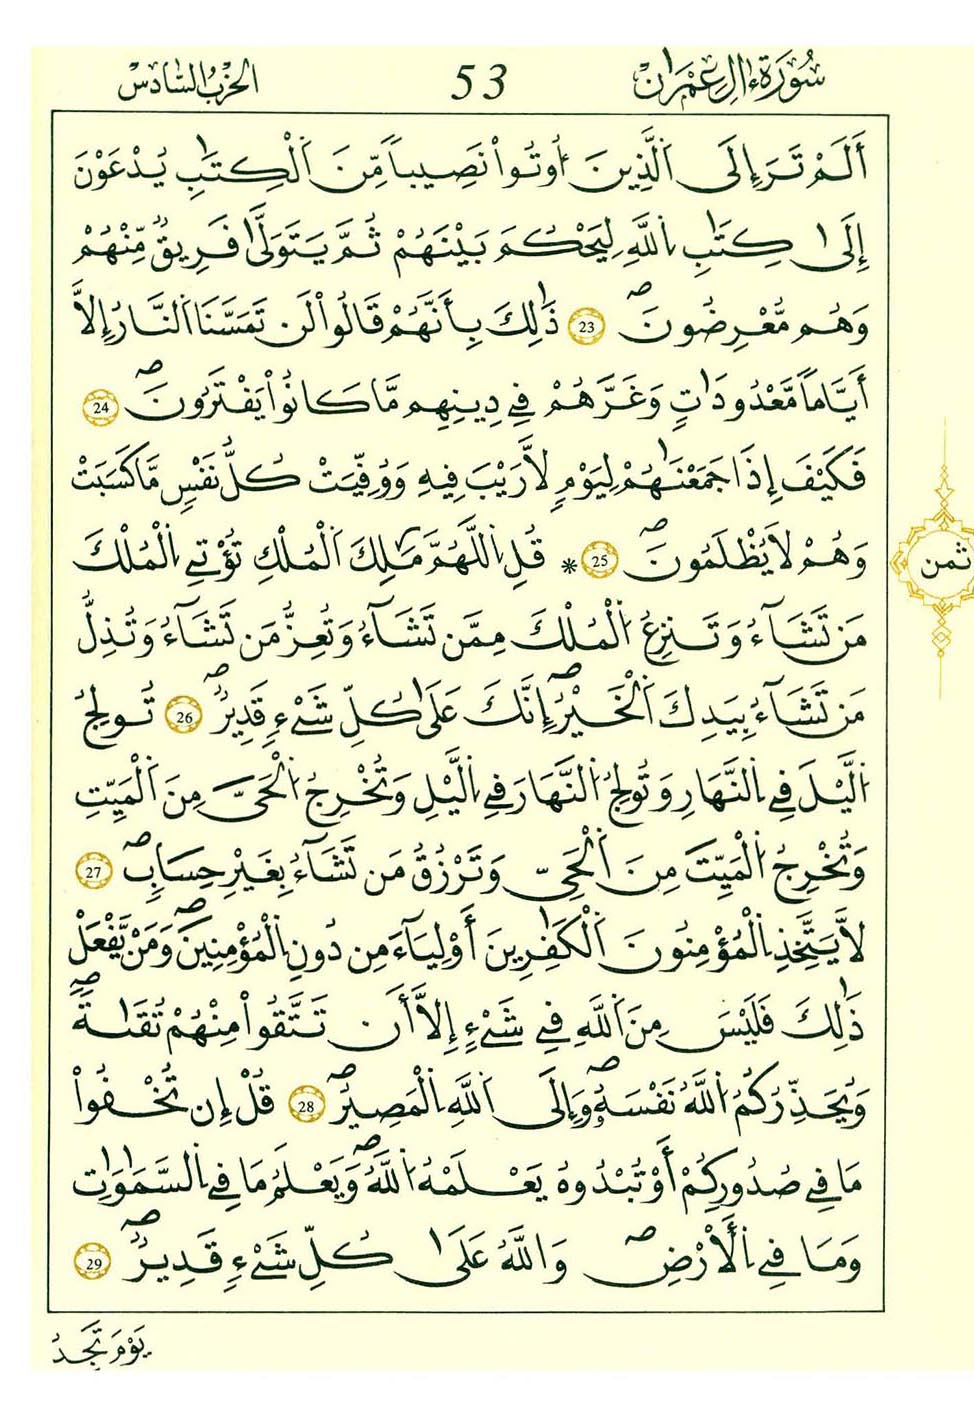 سُورَةُ ءَالِ عِمْرَٰن
53
الحِزْبُ السَّادِسْ
أَلَمْ تَرَ إِلَى اَ۬لذِينَ أُوتُواْ نَصِيباٗ مِّنَ اَ۬لْكِتَٰبِ يُدْعَوْنَ
إِلَىٰ كِتَٰبِ اِ۬للَّهِ لِيَحْكُمَ بَيْنَهُمْ ثُمَّ يَتَوَلَّىٰ فَرِيقٞ مِّنْهُمْ
وَهُم مُّعْرِضُونَۖ 23 ذَٰلِكَ بِأَنَّهُمْ قَالُواْ لَن تَمَسَّنَا اَ۬لنَّارُ إِلَّا
أَيَّاماٗ مَّعْدُودَٰتٖ وَغَرَّهُمْ فِے دِينِهِم مَّا كَانُواْ يَفْتَرُونَۖ 24
فَكَيْفَ إِذَا جَمَعْنَٰهُمْ لِيَوْمٖ لَّا رَيْبَ فِيهِ وَوُفِّيَتْ كُلُّ نَفْسٖ مَّا كَسَبَتْ
وَهُمْ لَا يُظْلَمُونَۖ 25 * قُلِ اِ۬للَّهُمَّ مَٰلِكَ اَ۬لْمُلْكِ تُؤْتِے اِ۬لْمُلْكَ
مَن تَشَآءُ وَتَنزِعُ اُ۬لْمُلْكَ مِمَّن تَشَآءُ وَتُعِزُّ مَن تَشَآءُ وَتُذِلُّ
مَن تَشَآءُ بِيَدِكَ اَ۬لْخَيْرُۖ إِنَّكَ عَلَىٰ كُلِّ شَےْءٖ قَدِيرٞۖ 26 تُولِجُ
اُ۬ليْلَ فِے اِ۬لنَّهَارِ وَتُولِجُ اُ۬لنَّهَارَ فِے اِ۬ليْلِ وَتُخْرِجُ اُ۬لْحَيَّ مِنَ اَ۬لْمَيِّتِ
وَتُخْرِجُ اُ۬لْمَيِّتَ مِنَ اَ۬لْحَيِّ وَتَرْزُقُ مَن تَشَآءُ بِغَيْرِ حِسَابٖۖ 27
لَّا يَتَّخِذِ اِ۬لْمُؤْمِنُونَ اَ۬لْكَٰفِرِينَ أَوْلِيَآءَ مِن دُونِ اِ۬لْمُؤْمِنِينَۖ وَمَنْ يَّفْعَلْ
ذَٰلِكَ فَلَيْسَ مِنَ اَ۬للَّهِ فِے شَےْءٍ إِلَّا أَن تَتَّقُواْ مِنْهُمْ تُقَىٰةٗۖ
وَيُحَذِّرُكُمُ اُ۬للَّهُ نَفْسَهُۥۖ وَإِلَى اَ۬للَّهِ اِ۬لْمَصِيرُۖ 28 قُلْ إِن تُخْفُواْ
مَا فِے صُدُورِكُمْ أَوْ تُبْدُوهُ يَعْلَمْهُ اُ۬للَّهُۖ وَيَعْلَمُ مَا فِے اِ۬لسَّمَٰوَٰتِ
وَمَا فِے اِ۬لْأَرْضِۖ وَاللَّهُ عَلَىٰ كُلِّ شَےْءٖ قَدِيرٞۖ 29
ثمن
يَوْمَ تَجِدُ